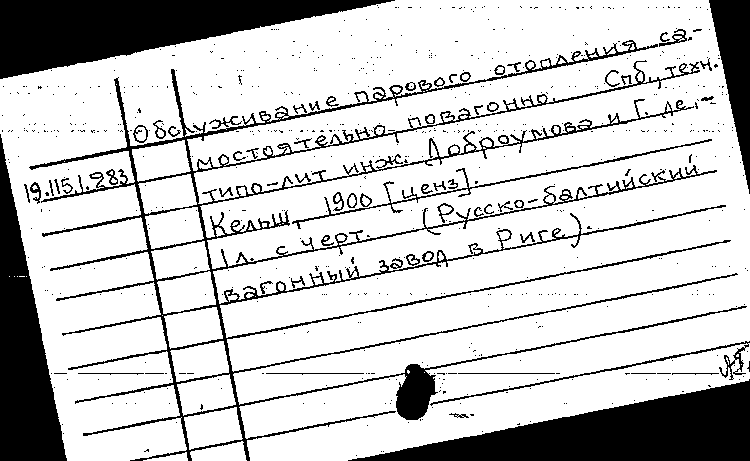 Обслуживание парового отопления са-
мостоятельно, повагонно. Спб., техн.
19.115.1.283 типо-лит инж. Доброумова и Г. де-
Кельш, 1900 [ценз].
1л. с черт. (Русско-балтийский
вагонный завод в Риге).